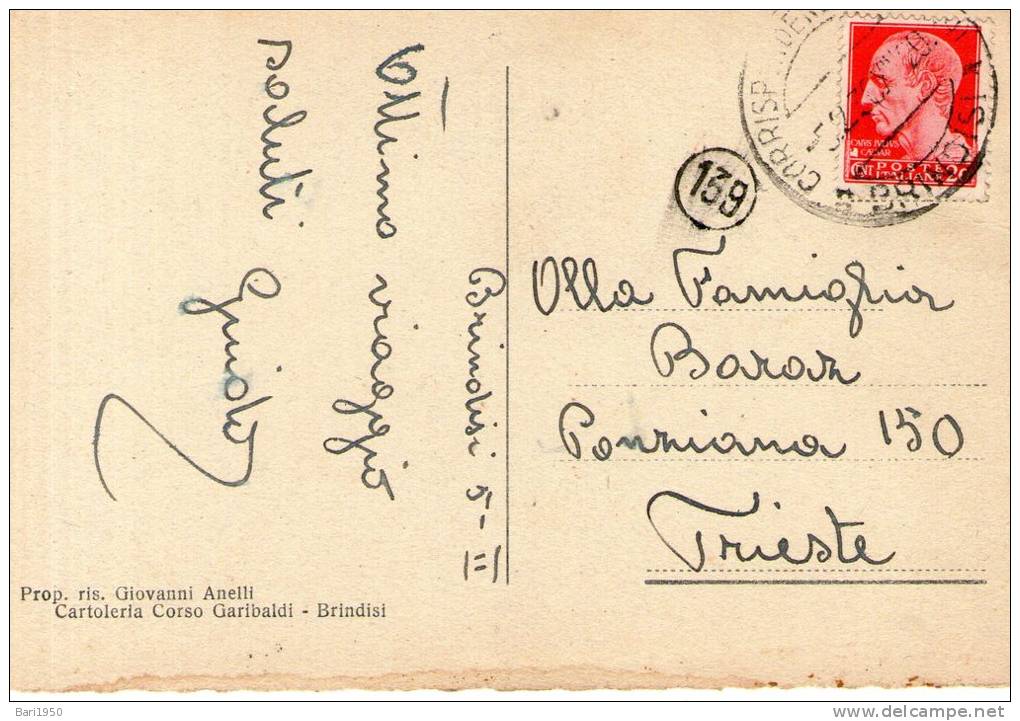 Brindisi 5-II
Ottimo viaggio
saluti Guido
Alla Famiglia
Baraz
Ponziana 150
Trieste
139
CORRISP
BRINDISI
CAIVS IVLIVS
CAESAR
POSTE
CENT ITALIANE 20
Prop. ris. Giovanni Anelli
Cartoleria Corso Garibaldi - Brindisi
Bari1950
www.delcampe.net